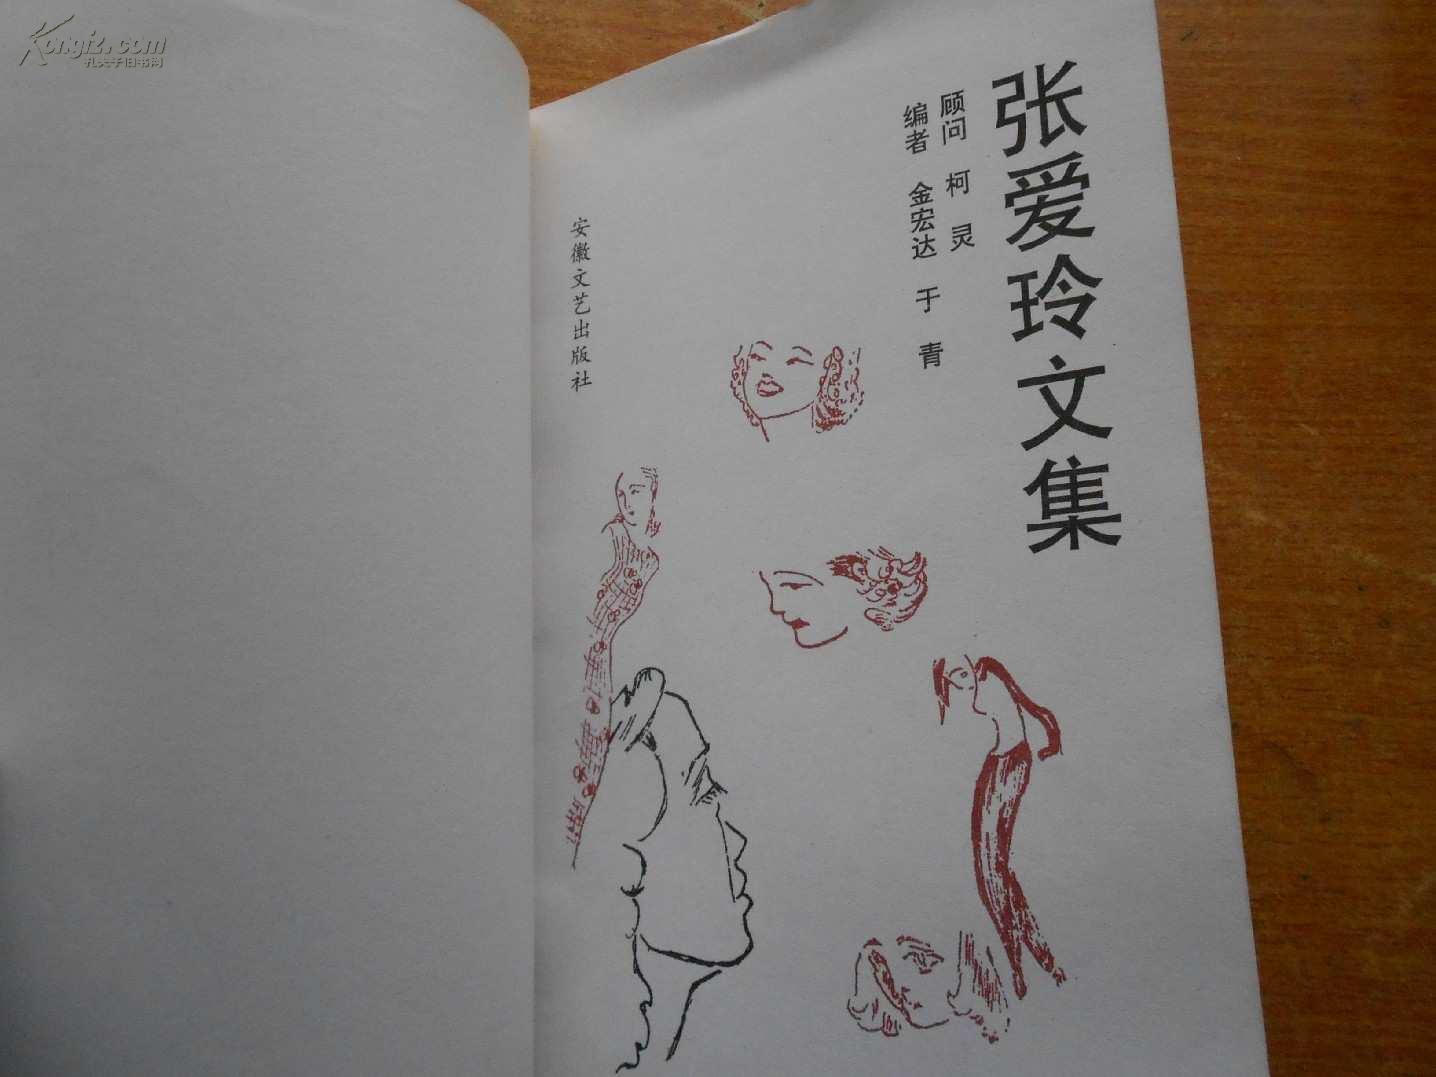 张爱玲文集
顾问 柯灵
编者 金宏达 于青
安徽文艺出版社
Kongfz.com
孔夫子旧书网